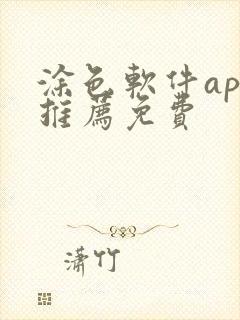 涂色軟件ap
推薦免費
瀟竹